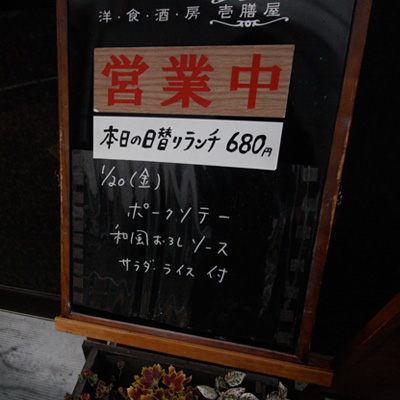 洋・食・酒・房 壱膳屋
営業中
本日の日替りランチ 680円
1/20(金)
ポークソテー
和風おろしソース
サラダ・ライス 付